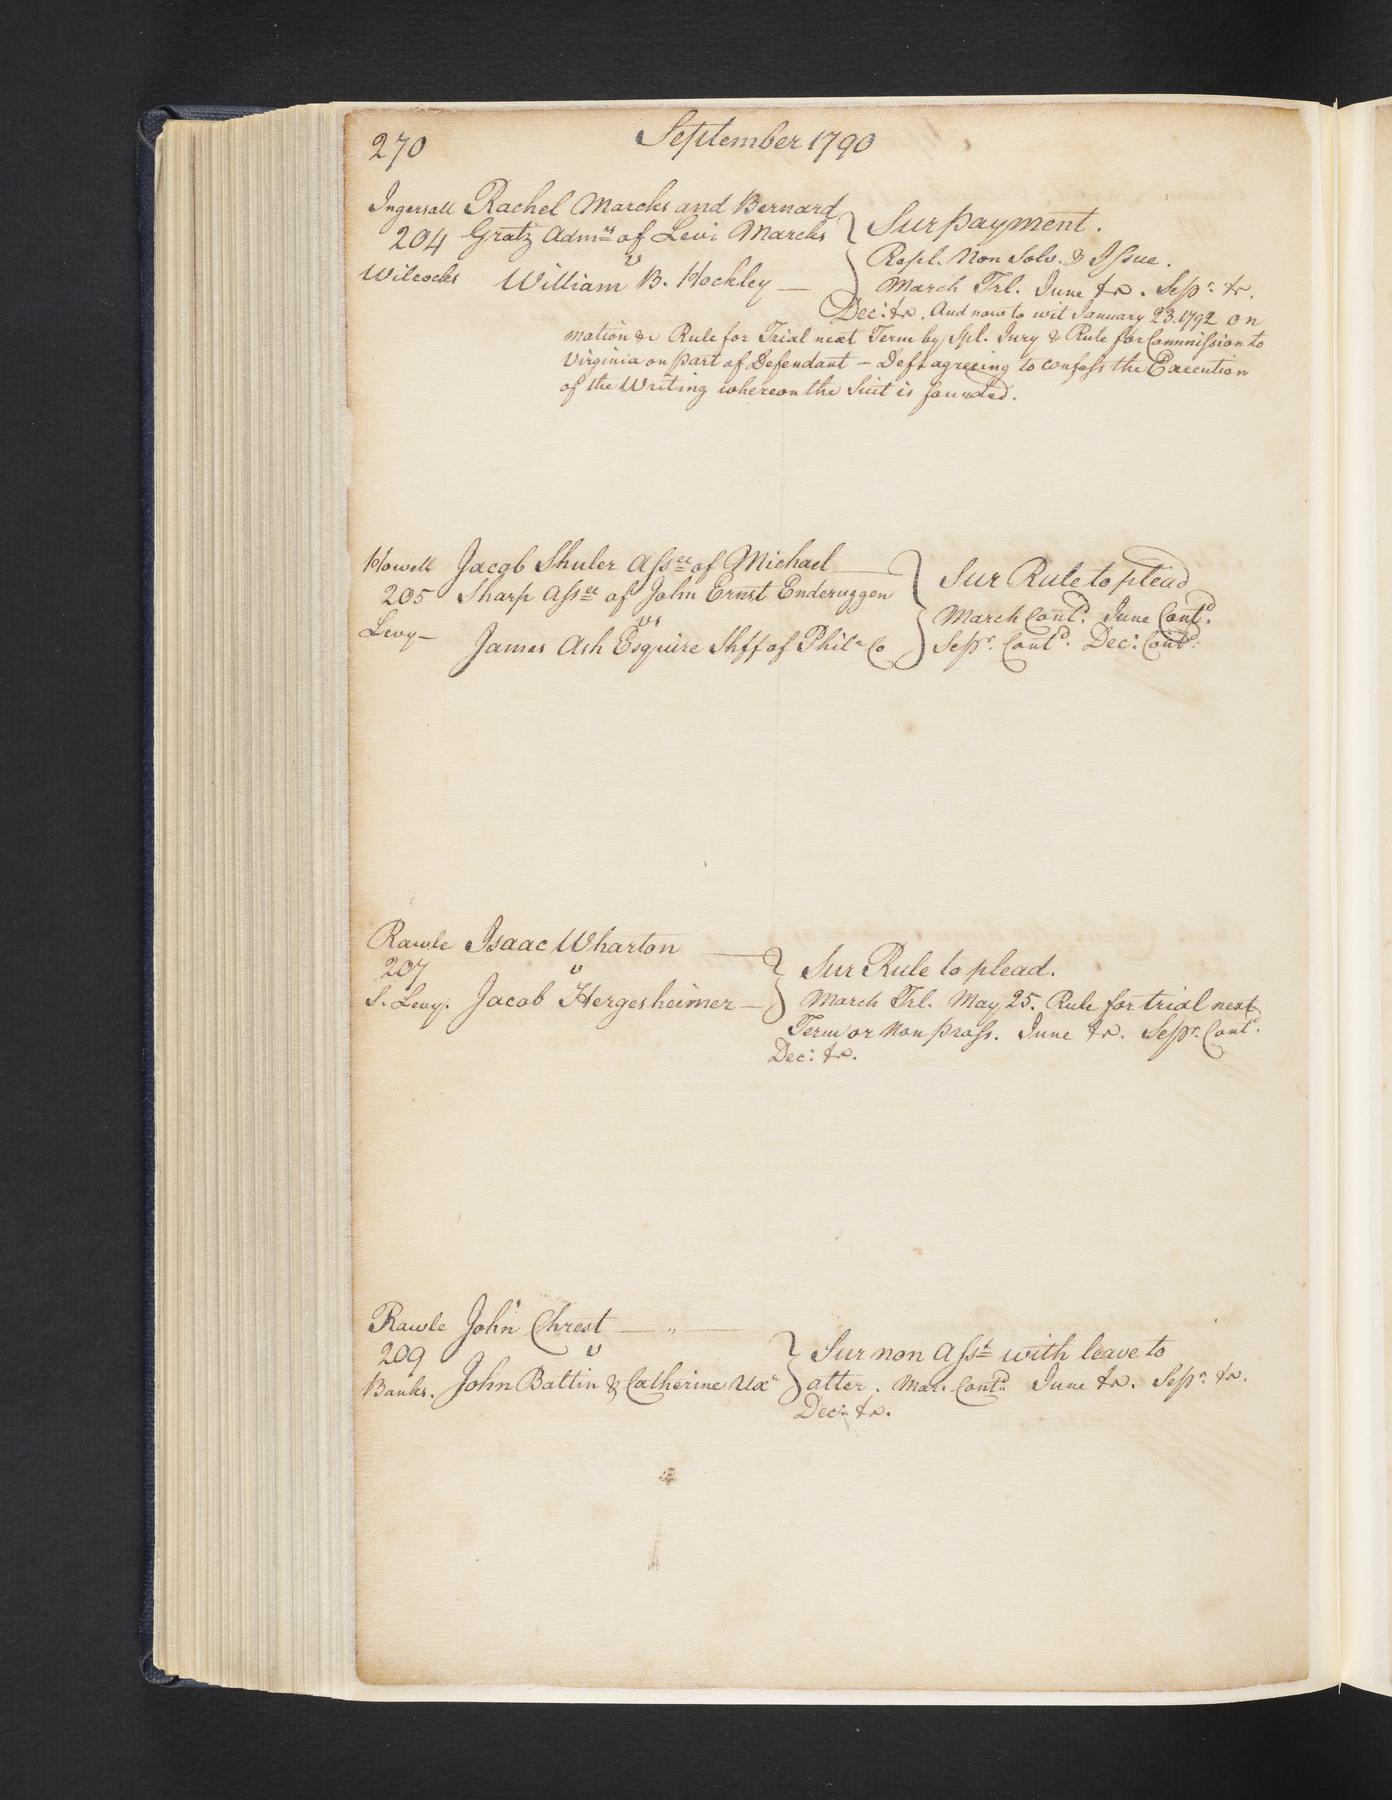 270 September 1790
Ingersoll Rachel Marcks and Bernard
204 Gratz Admrs of Levi Marcks } Sur payment.
v Repl. Non Solv. & Issue.
Wilcocks William B. Hockley — March Trl. June &c. Sepr. &c.
Decr. &c. And now to wit January 23. 1792 on
motion &c Rule for Trial next Term by Spl. Jury & Rule for Commission to
Virginia on part of Defendant — Deft agreeing to confess the Execution
of the Writing whereon the Suit is founded.
Howell Jacob Shuler Assee of Michael
205 Sharp Assee of John Ernst Enderuggen } Sur Rule to plead
vs March Contd. June Contd.
Levy — James Ash Esquire Shff of Phila Co Sepr. Contd. Decr. Contd.
Rawle Isaac Wharton —
207 v } Sur Rule to plead.
S. Levy. Jacob Hergesheimer — March Trl. May 25. Rule for trial next
Term or Non pross. June &c. Sepr. Contd.
Decr. &c.
Rawle John Chrest — " —
209 v } Sur non Asst with leave to
Banks. John Battin & Catherine Uxr alter. Mar. Contd. June &c. Sepr. &c.
Decr. &c.